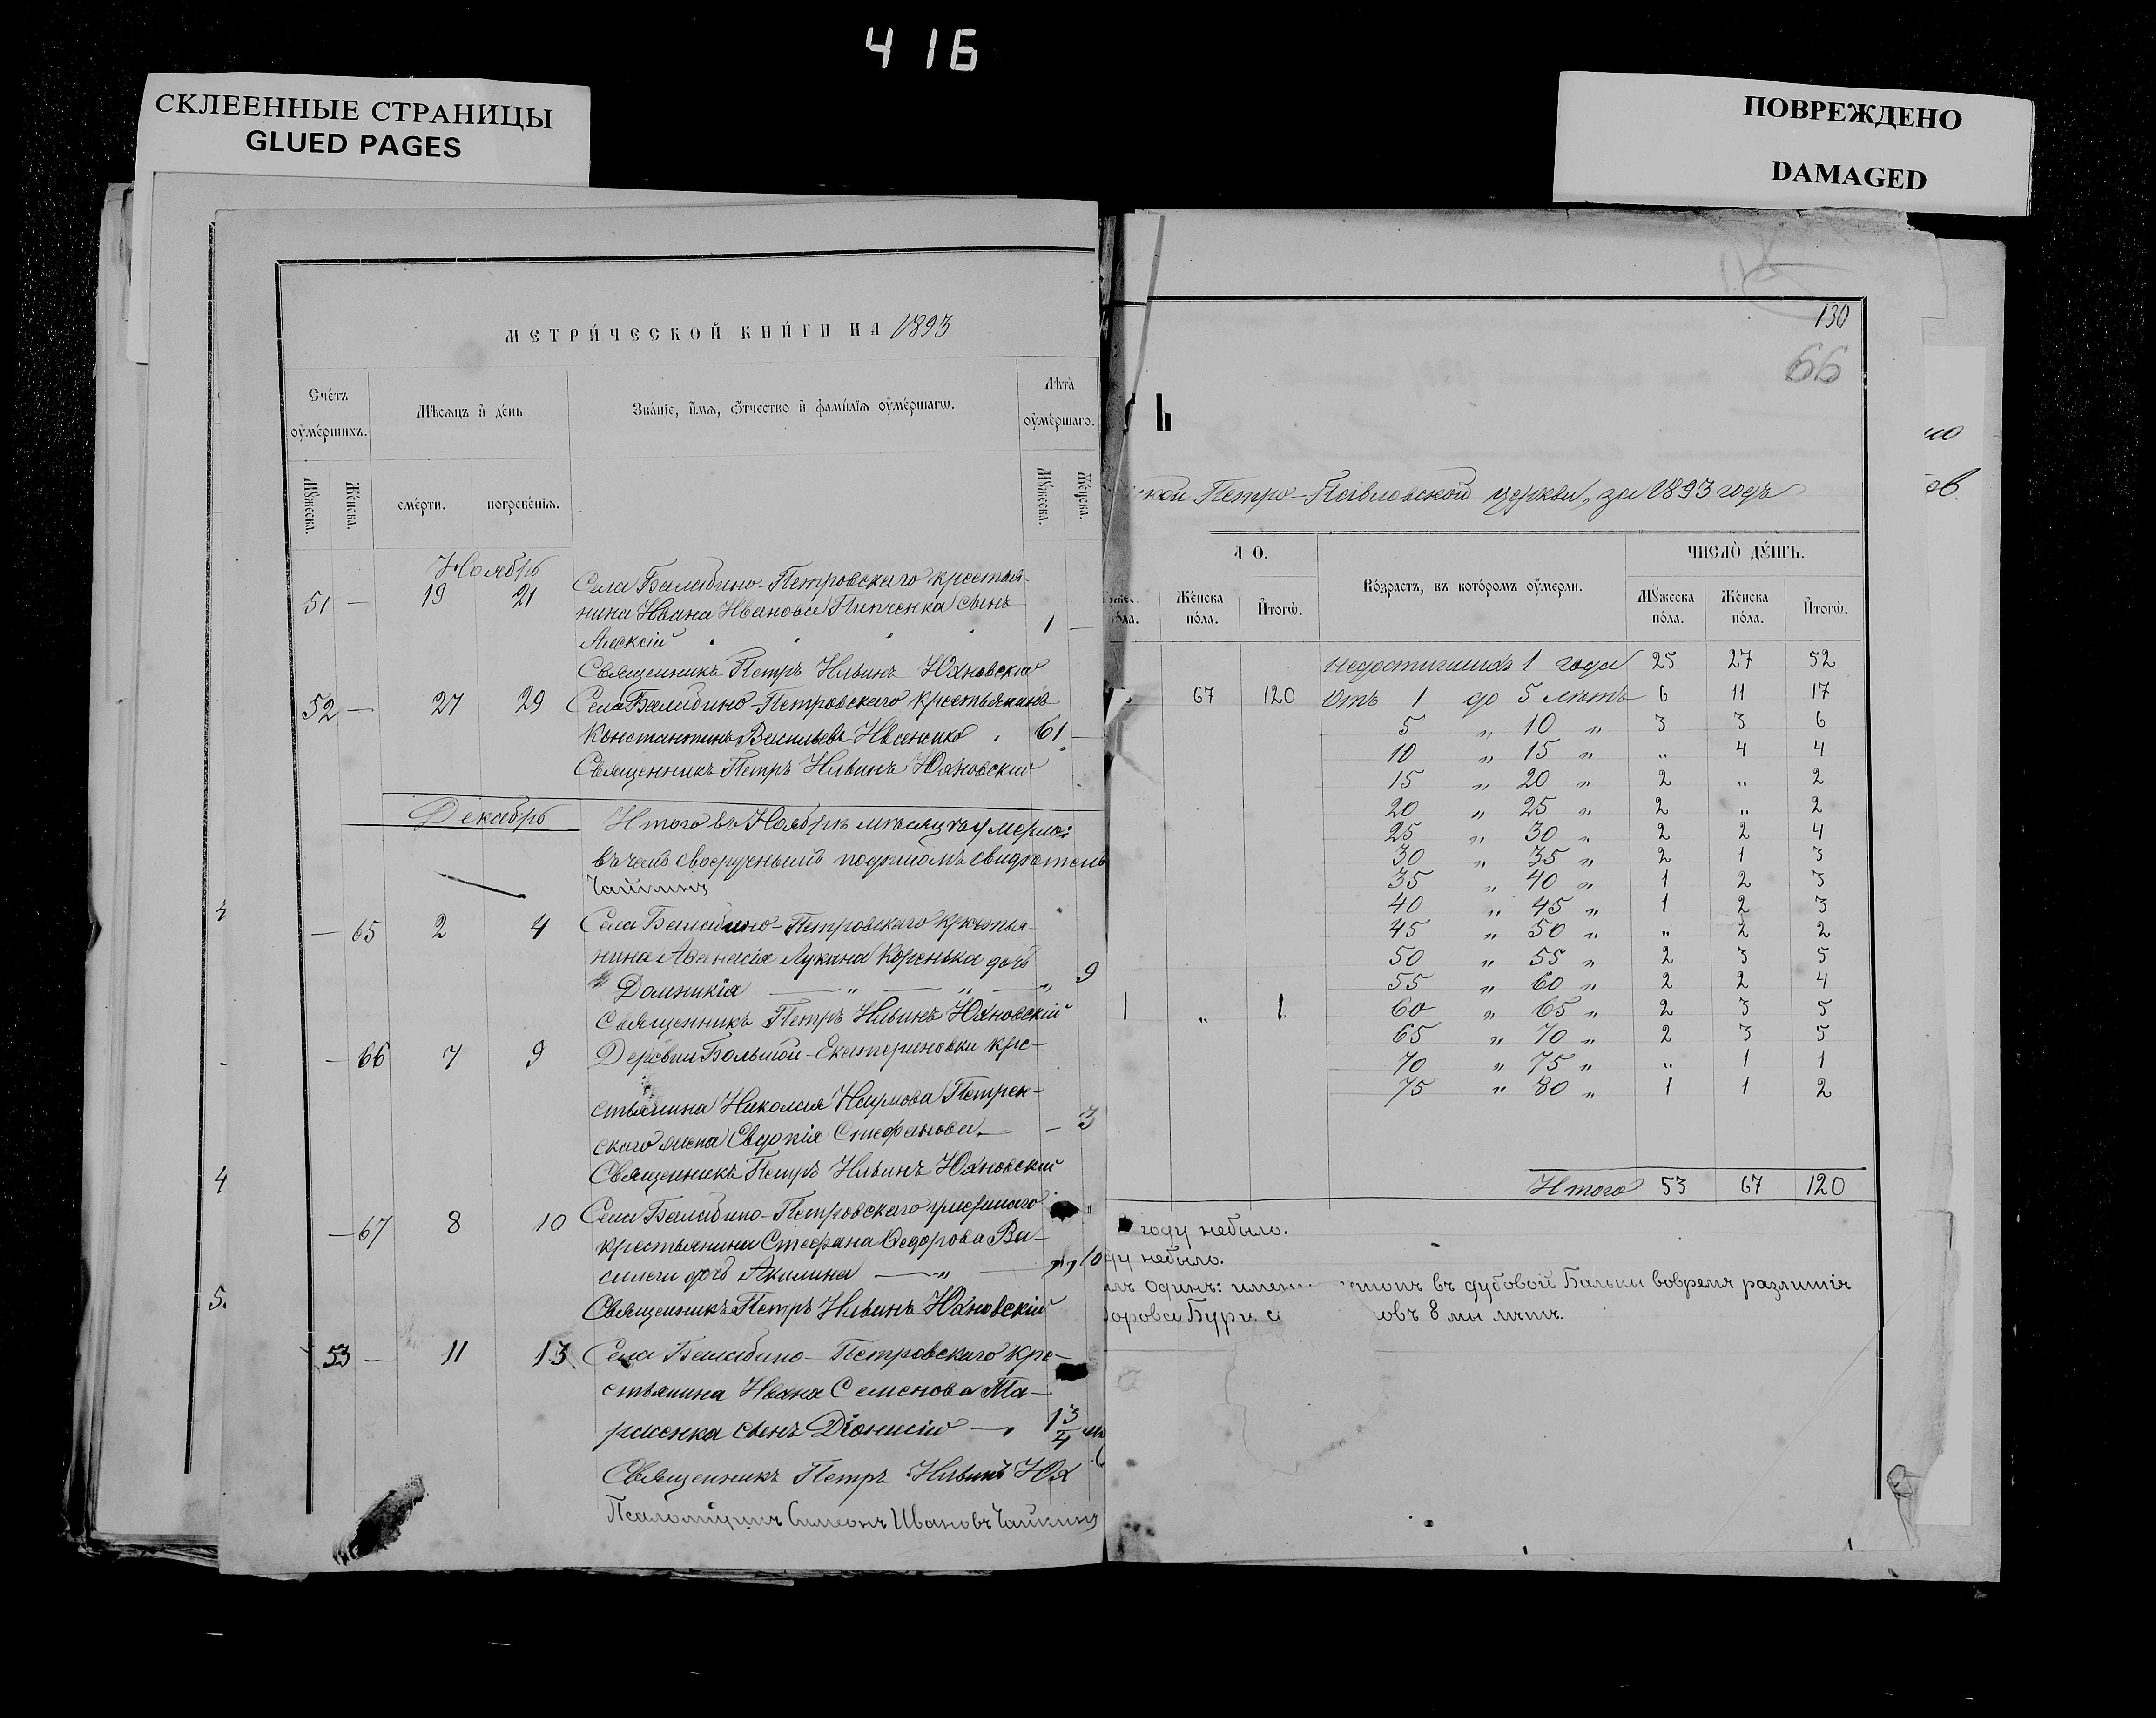 416
СКЛЕЕННЫЕ СТРАНИЦЫ
GLUED PAGES
ПОВРЕЖДЕНО
DAMAGED
МЕТРИ́ЧЕСКОЙ КНИ́ГИ НА 1893
Сче́тъ оу҆ме́ршихъ.
Мѣ́сѧцъ и҆ де́нь
Зва́нїе, и҆́мѧ, ѻ҆́тчество и҆ фами́лїѧ оу҆ме́ршагѡ.
Лѣта̀ оу҆ме́ршаго.
Мꙋ́жеска.
Же́нска.
сме́рти.
погребе́нїѧ.
Мꙋ́жеска.
Же́нска.
Ноябрь
51 — 19 21 Села Балабино-Петровскаго крестья-
нина Ивана Иванова Пипченка сынъ
Алексій 1 —
Священникъ Петръ Ильинъ Юхновскій
52 — 27 29 Села Балабино-Петровскаго крестьянинъ
Константинъ Васильевъ 61 —
Священникъ Петръ Ильинъ Юхновскій
Декабрь
Итого въ Ноябрѣ мѣсяцѣ умерло:
въ чемъ своеручнымъ подписомъ свидѣтель
Чайкинъ
— 65 2 4 Села Балабино-Петровскаго крестья-
нина Аѳанасія Лукина Коренька дочь
Домникія — „ — „ — „ 9
Священникъ Петръ Ильинъ Юхновскій
— 66 7 9 Деревни Большой-Екатериновки кре-
стьянина Николая Наумова Петрен-
скаго жена Евдокія Стефанова — — 3
Священникъ Петръ Ильинъ Юхновскій
— 67 8 10 Села Балабино-Петровскаго
крестьянина Стефана Ѳедорова Ва-
дочь Акилина — „ — „ 10
Священникъ Петръ Ильинъ Юхновскій
53 — 11 13 Села Балабино-Петровскаго кре-
стьянина Ивана Семенова Та-
расенка сынъ Діонисій — 1 3/4
Священникъ Петръ Ильинъ Юх
Псаломщикъ Симеонъ Ивановъ Чайкинъ
130
66
Ь
ской Петро-Павловской церкви, за 1893 годъ
Л О.
Во́зрастъ, въ кото́ромъ оу҆́мерли.
ЧИСЛО̀ ДꙊ́ШЪ.
Же́нска по́ла.
И҆того̀.
Мꙋ́жеска по́ла.
Же́нска по́ла.
И҆того̀.
недостигшихъ 1 года 25 27 52
67 120 Отъ 1 до 5 лѣтъ 6 11 17
5 „ 10 „ 3 3 6
10 „ 15 „ „ 4 4
15 „ 20 „ 2 „ 2
20 „ 25 „ 2 „ 2
25 „ 30 „ 2 2 4
30 „ 35 „ 2 1 3
35 „ 40 „ 1 2 3
40 „ 45 „ 1 2 3
45 „ 50 „ „ 2 2
50 „ 55 „ 2 3 5
55 „ 60 „ 2 2 4
1 „ 1 60 „ 65 „ 2 3 5
65 „ 70 „ 2 3 5
70 „ 75 „ „ 1 1
75 „ 80 „ 1 1 2
Итого 53 67 120
году небыло.
ду небыло.
одинъ: въ дубовой Балки вовремя разлитія
овъ 8 ми лѣтъ.